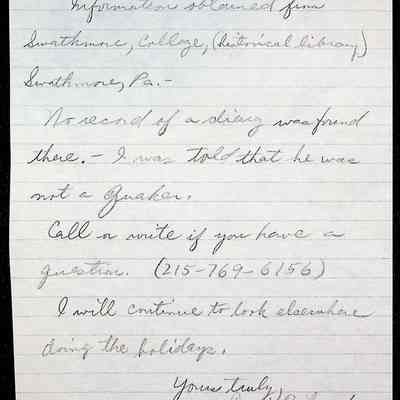 Information obtained from
Swathmore, College, (historical library)
Swathmore, Pa.-
No record of a diary was found
there. - I was told that he was
not a Quaker.
Call or write if you have a
question. (215-769-6156)
I will continue to look elsewhere
doing the holidays.
Yours truly